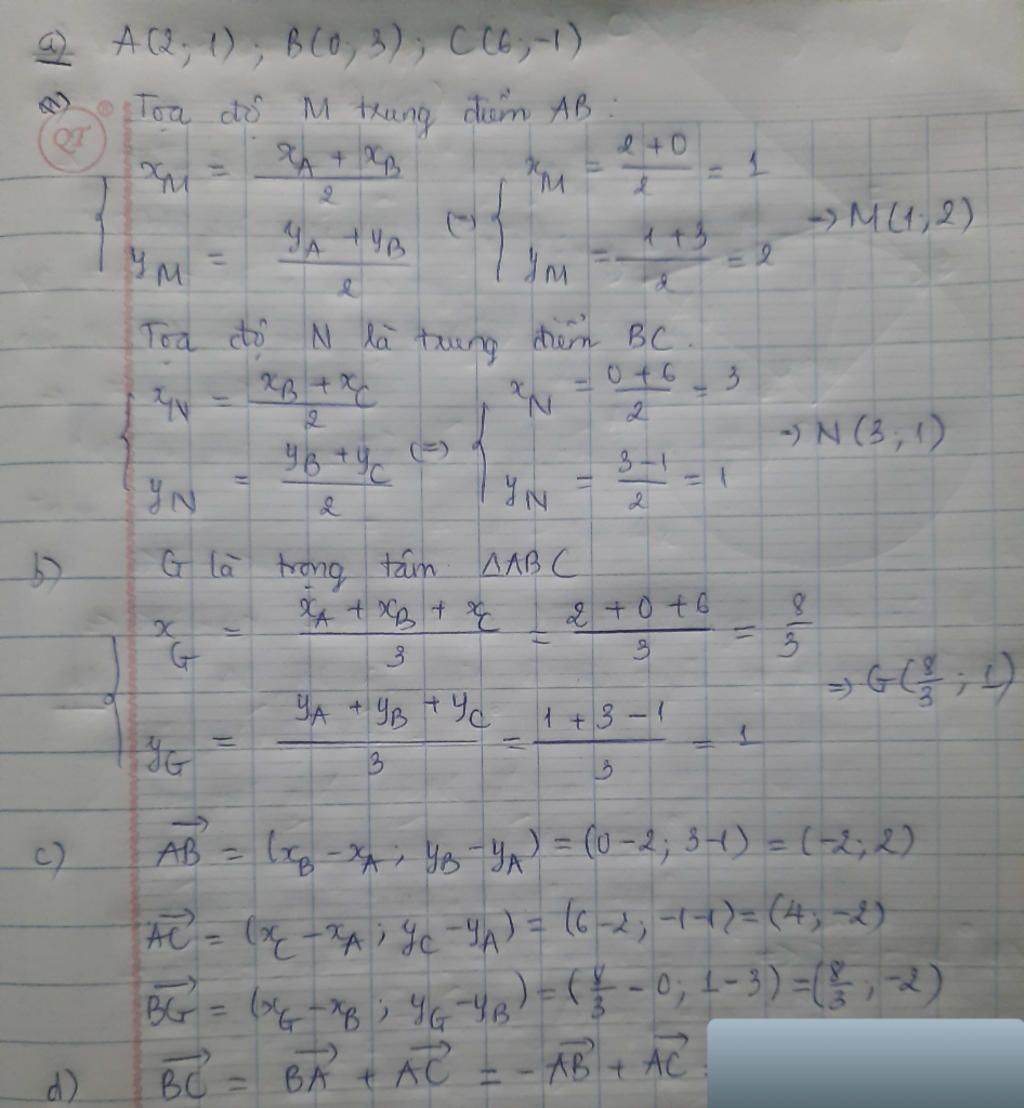 a) A(2; 1); B(0; 3); C(6; -1)
a) Tọa độ M trung điểm AB:
x_M = (x_A + x_B)/2 (=) x_M = (2 + 0)/2 = 1
y_M = (y_A + y_B)/2 y_M = (1 + 3)/2 = 2 → M(1; 2)
Tọa độ N là trung điểm BC.
x_N = (x_B + x_C)/2 (=) x_N = (0 + 6)/2 = 3
y_N = (y_B + y_C)/2 y_N = (3 - 1)/2 = 1 → N(3; 1)
b) G là trọng tâm ΔABC
x_G = (x_A + x_B + x_C)/3 = (2 + 0 + 6)/3 = 8/3
y_G = (y_A + y_B + y_C)/3 = (1 + 3 - 1)/3 = 1 ⇒ G(8/3; 1)
c) \overrightarrow{AB} = (x_B - x_A; y_B - y_A) = (0 - 2; 3 - 1) = (-2; 2)
\overrightarrow{AC} = (x_C - x_A; y_C - y_A) = (6 - 2; -1 - 1) = (4; -2)
\overrightarrow{BG} = (x_G - x_B; y_G - y_B) = (8/3 - 0; 1 - 3) = (8/3; -2)
d) \overrightarrow{BC} = \overrightarrow{BA} + \overrightarrow{AC} = -\overrightarrow{AB} + \overrightarrow{AC}